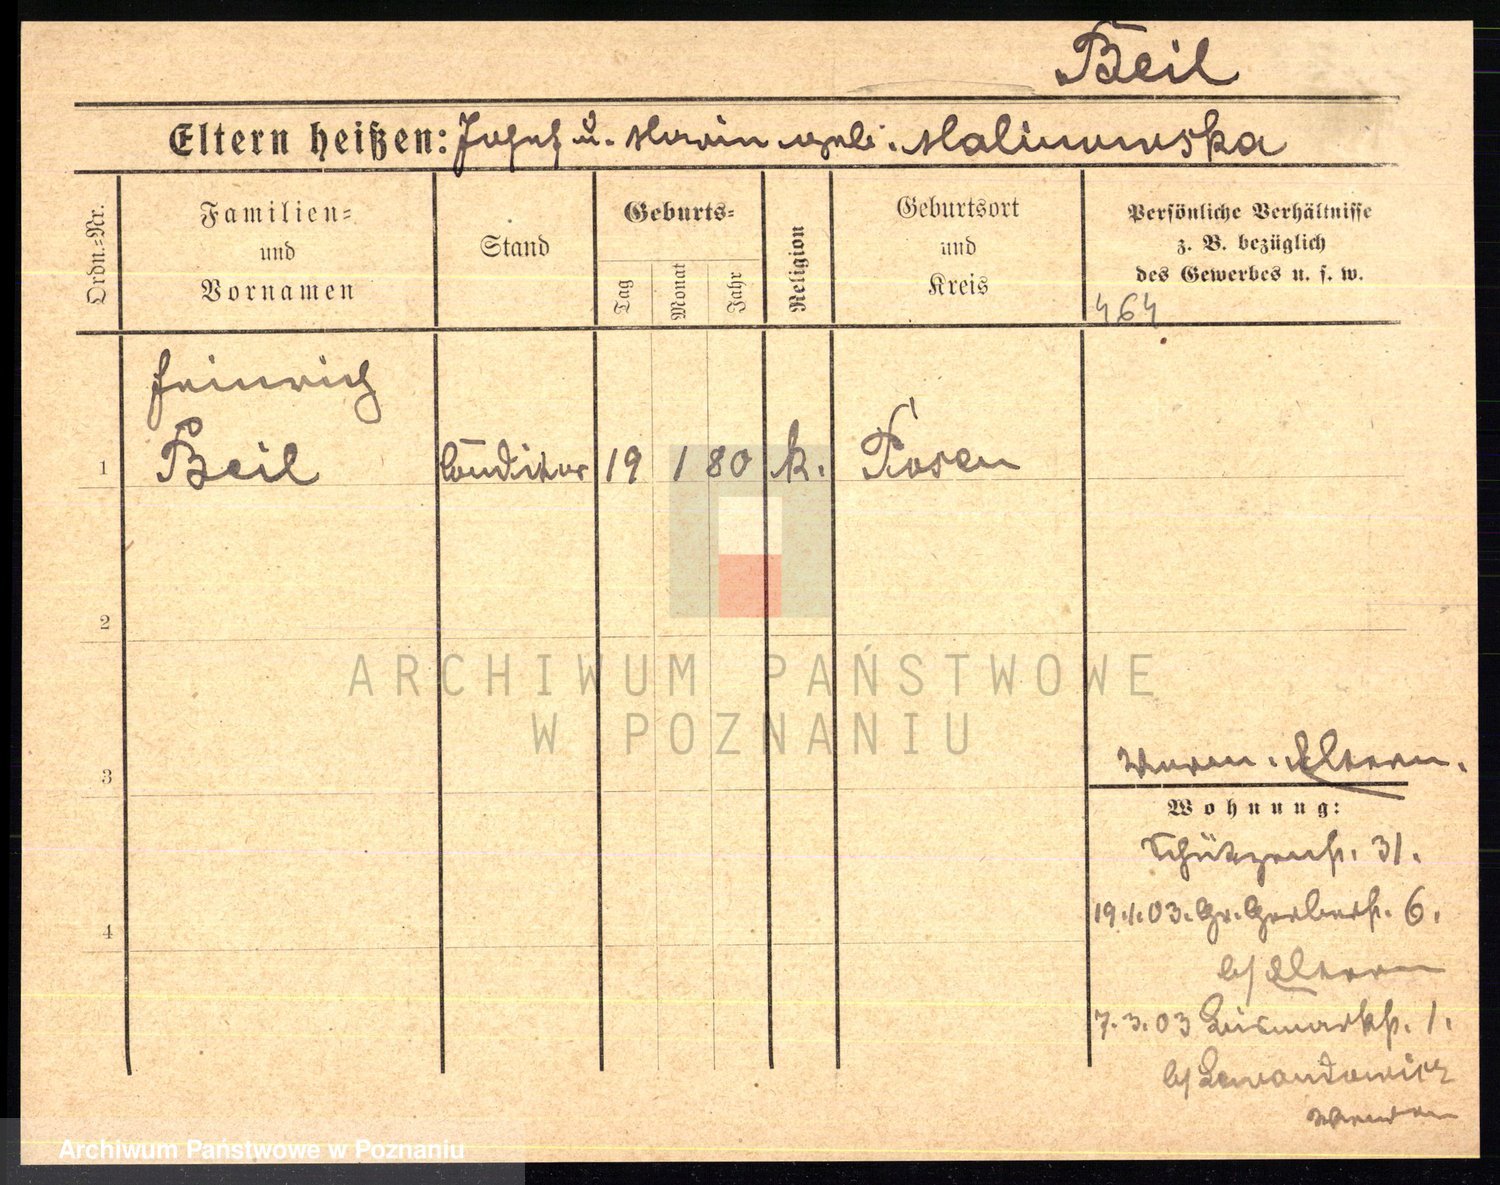 Beil
Eltern heißen: Josef u. Maria geb. Malinowska
Ordn.=Nr.
Familien=
und
Vornamen
Stand
Geburts=
Tag
Monat
Jahr
Religion
Geburtsort
und
Kreis
Persönliche Verhältnisse
z. B. bezüglich
des Gewerbes u. s. w.
464
Heinrich
1 Beil Conditor 19 1 80 k. Posen
2
3
4
Eltern.
Wohnung:
Schützenstr. 31.
19.1.03. Gr. Gerberstr. 6.
b/ Eltern
7.3.03 Bismarckstr. 1.
b/ Lewandowicz
wenden
ARCHIWUM PAŃSTWOWE
W POZNANIU
Archiwum Państwowe w Poznaniu